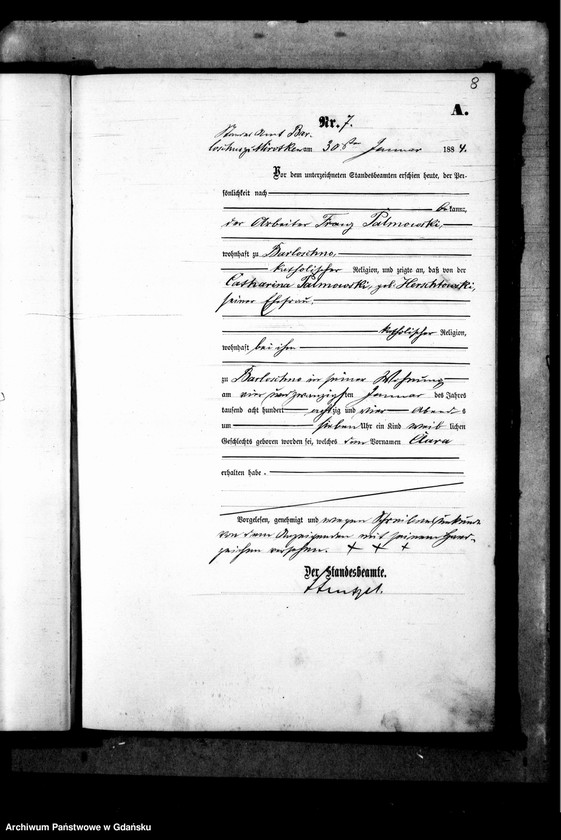 8
A.
Nr. 7.
Standes Amt Bar-
am 30ten Januar 1884.
Vor dem unterzeichneten Standesbeamten erschien heute, der Per-
sönlichkeit nach
bekannt,
der Arbeiter Franz Palmowski,
wohnhaft zu Barloschno,
katholischer Religion, und zeigte an, daß von der
Catharina Palmowski, geb.
seiner Ehefrau.
katholischer Religion,
wohnhaft bei ihm
zu Barloschno in seiner Wohnung
am vier und zwanzigsten Januar des Jahres
tausend acht hundert achtzig und vier Abends
um sieben Uhr ein Kind weiblichen
Geschlechts geboren worden sei, welches den Vornamen
erhalten habe.
Vorgelesen, genehmigt und wegen Schreibensunkunde
von dem Anzeigenden mit seinem Hand-
zeichen versehen. + + +
Der Standesbeamte.
Archiwum Państwowe w Gdańsku